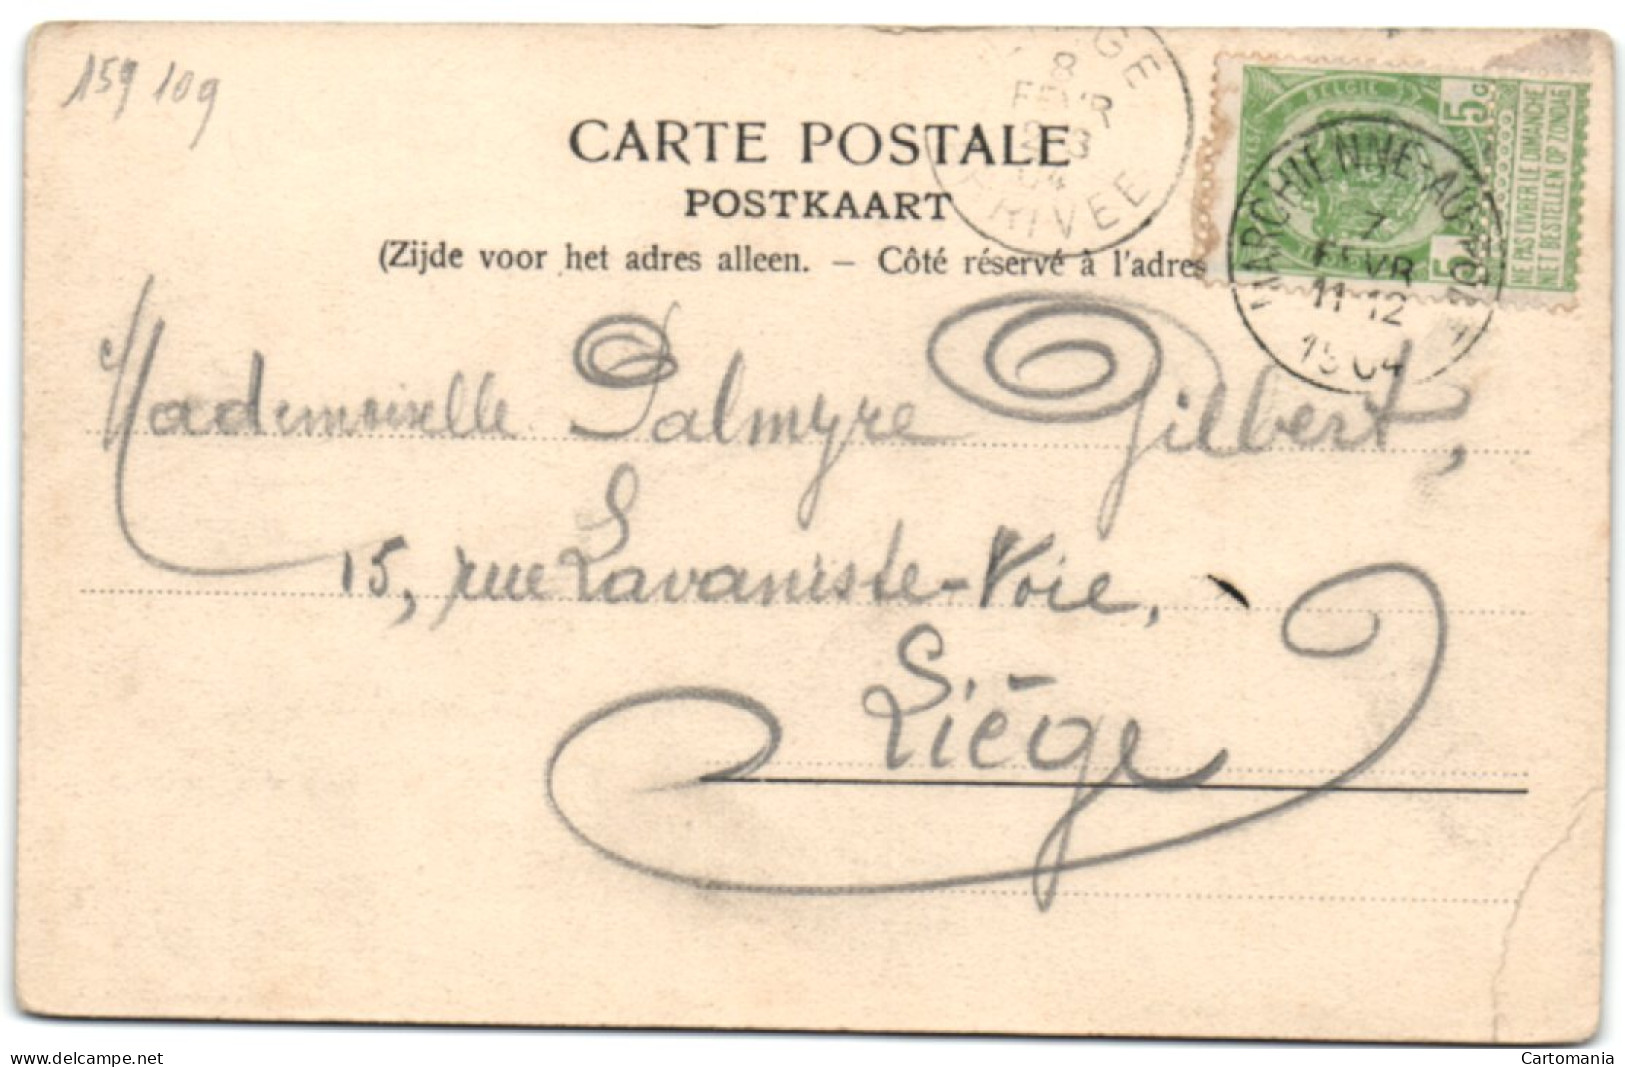 159 109
CARTE POSTALE
POSTKAART
(Zijde voor het adres alleen. – Côté réservé à l'adres
8
FEVR
04
ARRIVEE
BELGIE
5c
5
NE PAS LIVRER LE DIMANCHE
NIET BESTELLEN OP ZONDAG
MARCHIENNE-AU-PONT
7
FEVR
11-12
1904
Mademoiselle Palmyre Gilbert,
15, rue Lavaniste-Voie,
Liège
delcampe.net
Cartomania